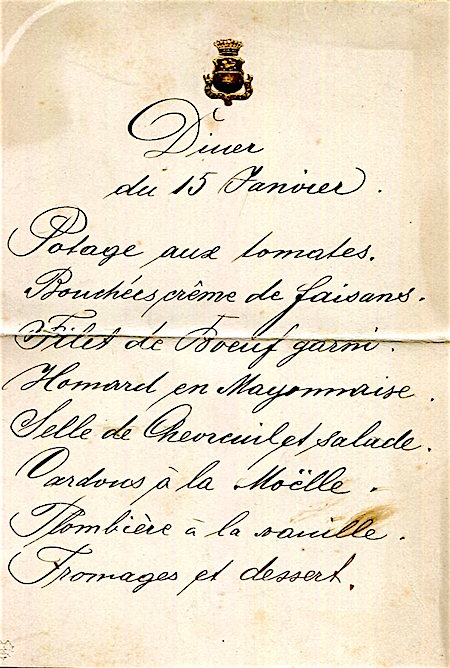 Diner
du 15 Janvier.
Potage aux tomates.
Bouchées crême de faisans.
Filet de Boeuf garni.
Homard en Mayonnaise.
Selle de Chevreuil et salade.
Cardons à la Moëlle.
Plombière à la vanille.
Fromages et dessert.